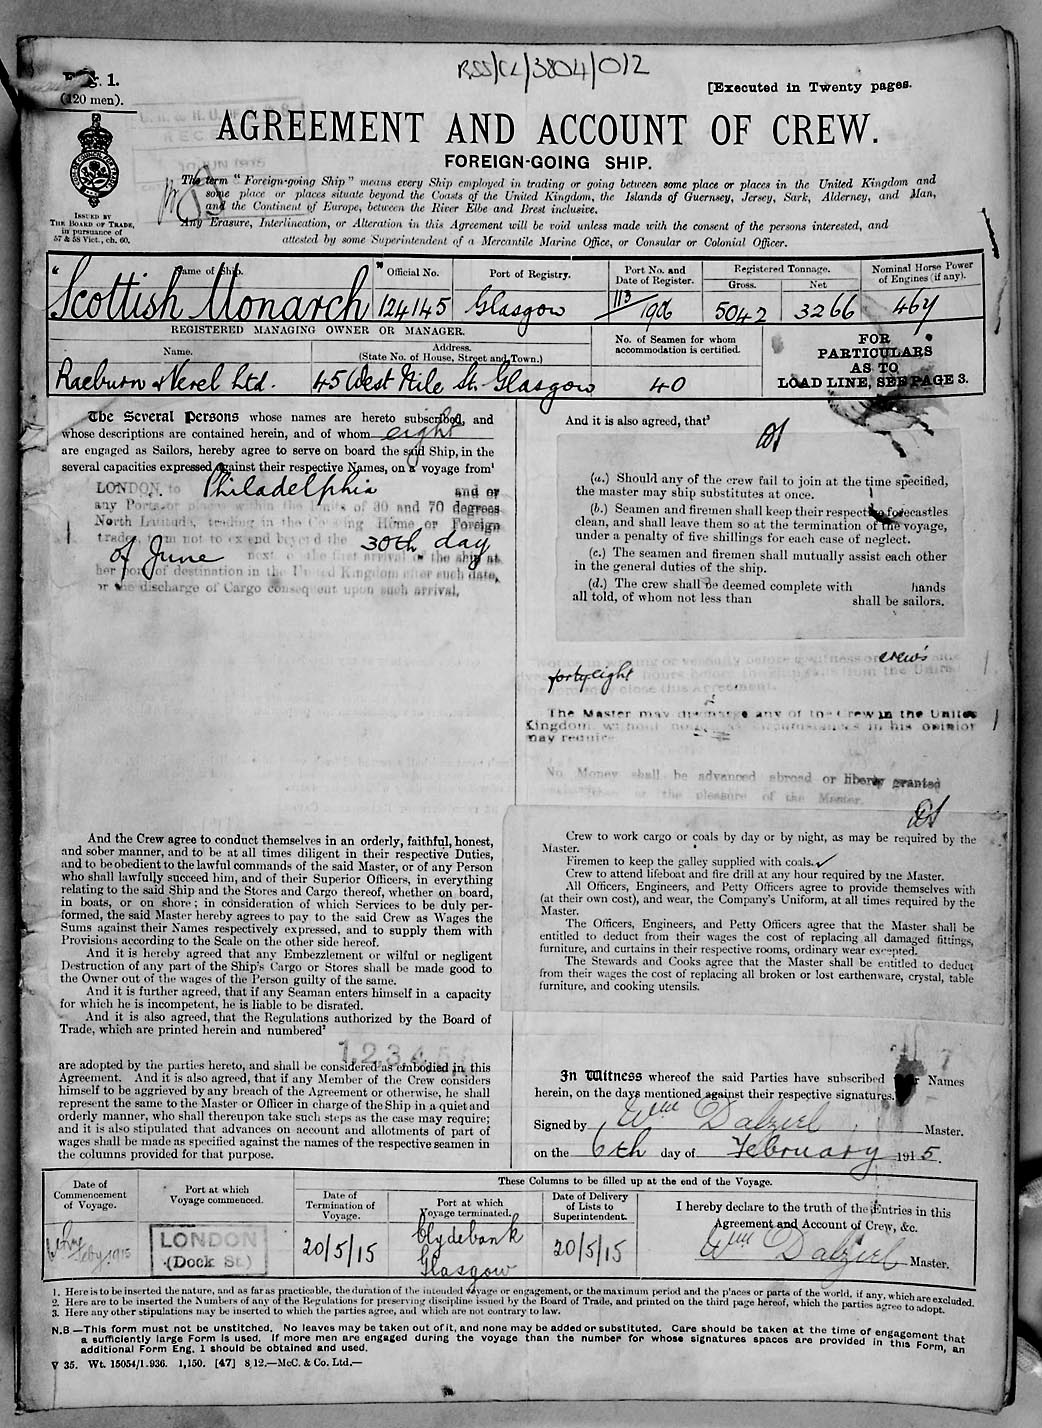 RSS/CL/3804/012
Eng. 1.
(120 men).
[Executed in Twenty pages.
AGREEMENT AND ACCOUNT OF CREW.
FOREIGN-GOING SHIP.
The term "Foreign-going Ship" means every Ship employed in trading or going between some place or places in the United Kingdom and
some place or places situate beyond the Coasts of the United Kingdom, the Islands of Guernsey, Jersey, Sark, Alderney, and Man,
and the Continent of Europe, between the River Elbe and Brest inclusive.
Any Erasure, Interlineation, or Alteration in this Agreement will be void unless made with the consent of the persons interested, and
attested by some Superintendent of a Mercantile Marine Office, or Consular or Colonial Officer.
ISSUED BY
THE BOARD OF TRADE,
in pursuance of
57 & 58 Vict., ch. 60.
Name of Ship. Official No. Port of Registry. Port No. and Date of Register. Registered Tonnage. Gross. Net Nominal Horse Power of Engines (if any).
"Scottish Monarch" 124145 Glasgow 113/1906 5042 3266 464
REGISTERED MANAGING OWNER OR MANAGER.
Name. Address. (State No. of House, Street and Town.) No. of Seamen for whom accommodation is certified.
Raeburn & Verel Ltd. 45 West Nile St. Glasgow 40
FOR
PARTICULARS
AS TO
LOAD LINE, SEE PAGE 3.
The Several Persons whose names are hereto subscribed, and
whose descriptions are contained herein, and of whom eight
are engaged as Sailors, hereby agree to serve on board the said Ship, in the
several capacities expressed against their respective Names, on a voyage from¹
LONDON to Philadelphia and or
any Ports or places within the limits of 30 and 70 degrees
North Latitude, trading in the Home or Foreign
trades, term not to extend beyond the 30th day
of June next, or the first arrival of the ship at
her port of destination in the United Kingdom after such date,
or the discharge of Cargo consequent upon such arrival.
And the Crew agree to conduct themselves in an orderly, faithful, honest,
and sober manner, and to be at all times diligent in their respective Duties,
and to be obedient to the lawful commands of the said Master, or of any Person
who shall lawfully succeed him, and of their Superior Officers, in everything
relating to the said Ship and the Stores and Cargo thereof, whether on board,
in boats, or on shore; in consideration of which Services to be duly per-
formed, the said Master hereby agrees to pay to the said Crew as Wages the
Sums against their Names respectively expressed, and to supply them with
Provisions according to the Scale on the other side hereof.
And it is hereby agreed that any Embezzlement or wilful or negligent
Destruction of any part of the Ship's Cargo or Stores shall be made good to
the Owner out of the wages of the Person guilty of the same.
And it is further agreed, that if any Seaman enters himself in a capacity
for which he is incompetent, he is liable to be disrated.
And it is also agreed, that the Regulations authorized by the Board of
Trade, which are printed herein and numbered²
1, 2, 3, 4, 5
are adopted by the parties hereto, and shall be considered as embodied in this
Agreement. And it is also agreed, that if any Member of the Crew considers
himself to be aggrieved by any breach of the Agreement or otherwise, he shall
represent the same to the Master or Officer in charge of the Ship in a quiet and
orderly manner, who shall thereupon take such steps as the case may require;
and it is also stipulated that advances on account and allotments of part of
wages shall be made as specified against the names of the respective seamen in
the columns provided for that purpose.
And it is also agreed, that³
(a.) Should any of the crew fail to join at the time specified,
the master may ship substitutes at once.
(b.) Seamen and firemen shall keep their respective forecastles
clean, and shall leave them so at the termination of the voyage,
under a penalty of five shillings for each case of neglect.
(c.) The seamen and firemen shall mutually assist each other
in the general duties of the ship.
(d.) The crew shall be deemed complete with hands
all told, of whom not less than shall be sailors.
crew's
forty eight
The Master may discharge any of the Crew in the United
Kingdom, without notice, as circumstances in his opinion
may require
No Money shall be advanced abroad or liberty granted
other than at the pleasure of the Master.
Crew to work cargo or coals by day or by night, as may be required by the
Master.
Firemen to keep the galley supplied with coals.
Crew to attend lifeboat and fire drill at any hour required by the Master.
All Officers, Engineers, and Petty Officers agree to provide themselves with
(at their own cost), and wear, the Company's Uniform, at all times required by the
Master.
The Officers, Engineers, and Petty Officers agree that the Master shall be
entitled to deduct from their wages the cost of replacing all damaged fittings,
furniture, and curtains in their respective rooms, ordinary wear excepted.
The Stewards and Cooks agree that the Master shall be entitled to deduct
from their wages the cost of replacing all broken or lost earthenware, crystal, table
furniture, and cooking utensils.
In Witness whereof the said Parties have subscribed their Names
herein, on the days mentioned against their respective signatures.
Signed by Wm Dalziel Master.
on the 6th day of February 1915.
These Columns to be filled up at the end of the Voyage.
Date of Commencement of Voyage. Port at which Voyage commenced. Date of Termination of Voyage. Port at which Voyage terminated. Date of Delivery of Lists to Superintendent. I hereby declare to the truth of the Entries in this Agreement and Account of Crew, &c.
Feby 1915 LONDON (Dock St.) 20/5/15 Clydebank Glasgow 20/5/15 Wm Dalziel Master.
1. Here is to be inserted the nature, and as far as practicable, the duration of the intended voyage or engagement, or the maximum period and the places or parts of the world, if any, which are excluded.
2. Here are to be inserted the Numbers of any of the Regulations for preserving discipline issued by the Board of Trade, and printed on the third page hereof, which the parties agree to adopt.
3. Here any other stipulations may be inserted to which the parties agree, and which are not contrary to law.
N.B.—This form must not be unstitched. No leaves may be taken out of it, and none may be added or substituted. Care should be taken at the time of engagement that
a sufficiently large Form is used. If more men are engaged during the voyage than the number for whose signatures spaces are provided in this Form, an
additional Form Eng. 1 should be obtained and used.
V 35. Wt. 15054/1.936. 1,150. [47] 8 12.—McC. & Co. Ltd.—